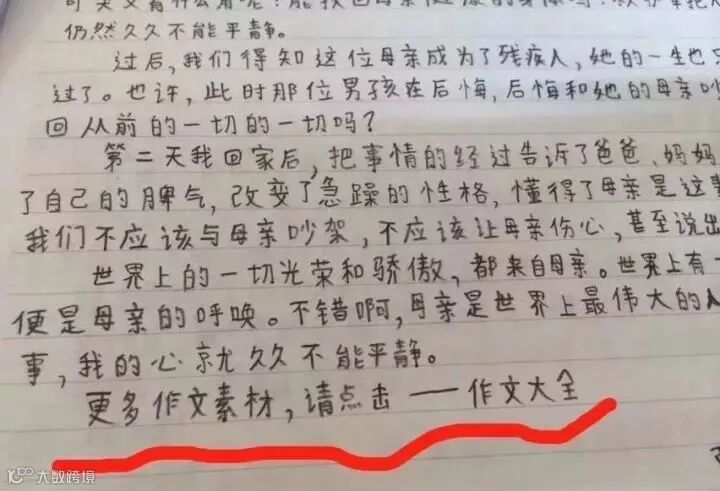 仍然久久不能平静。
过后,我们得知这位母亲成为了残疾人,她的一生也
过了。也许,此时那位男孩在后悔,后悔和她的母亲吵
回从前的一切的一切吗?
第二天我回家后,把事情的经过告诉了爸爸、妈妈
了自己的脾气,改变了急躁的性格,懂得了母亲是这
我们不应该与母亲吵架,不应该让母亲伤心,甚至说出
世界上的一切光荣和骄傲,都来自母亲。世界上有一
便是母亲的呼唤。不错啊,母亲是世界上最伟大的人
事,我的心就久久不能平静。
更多作文素材,请点击——作文大全
大数跨境